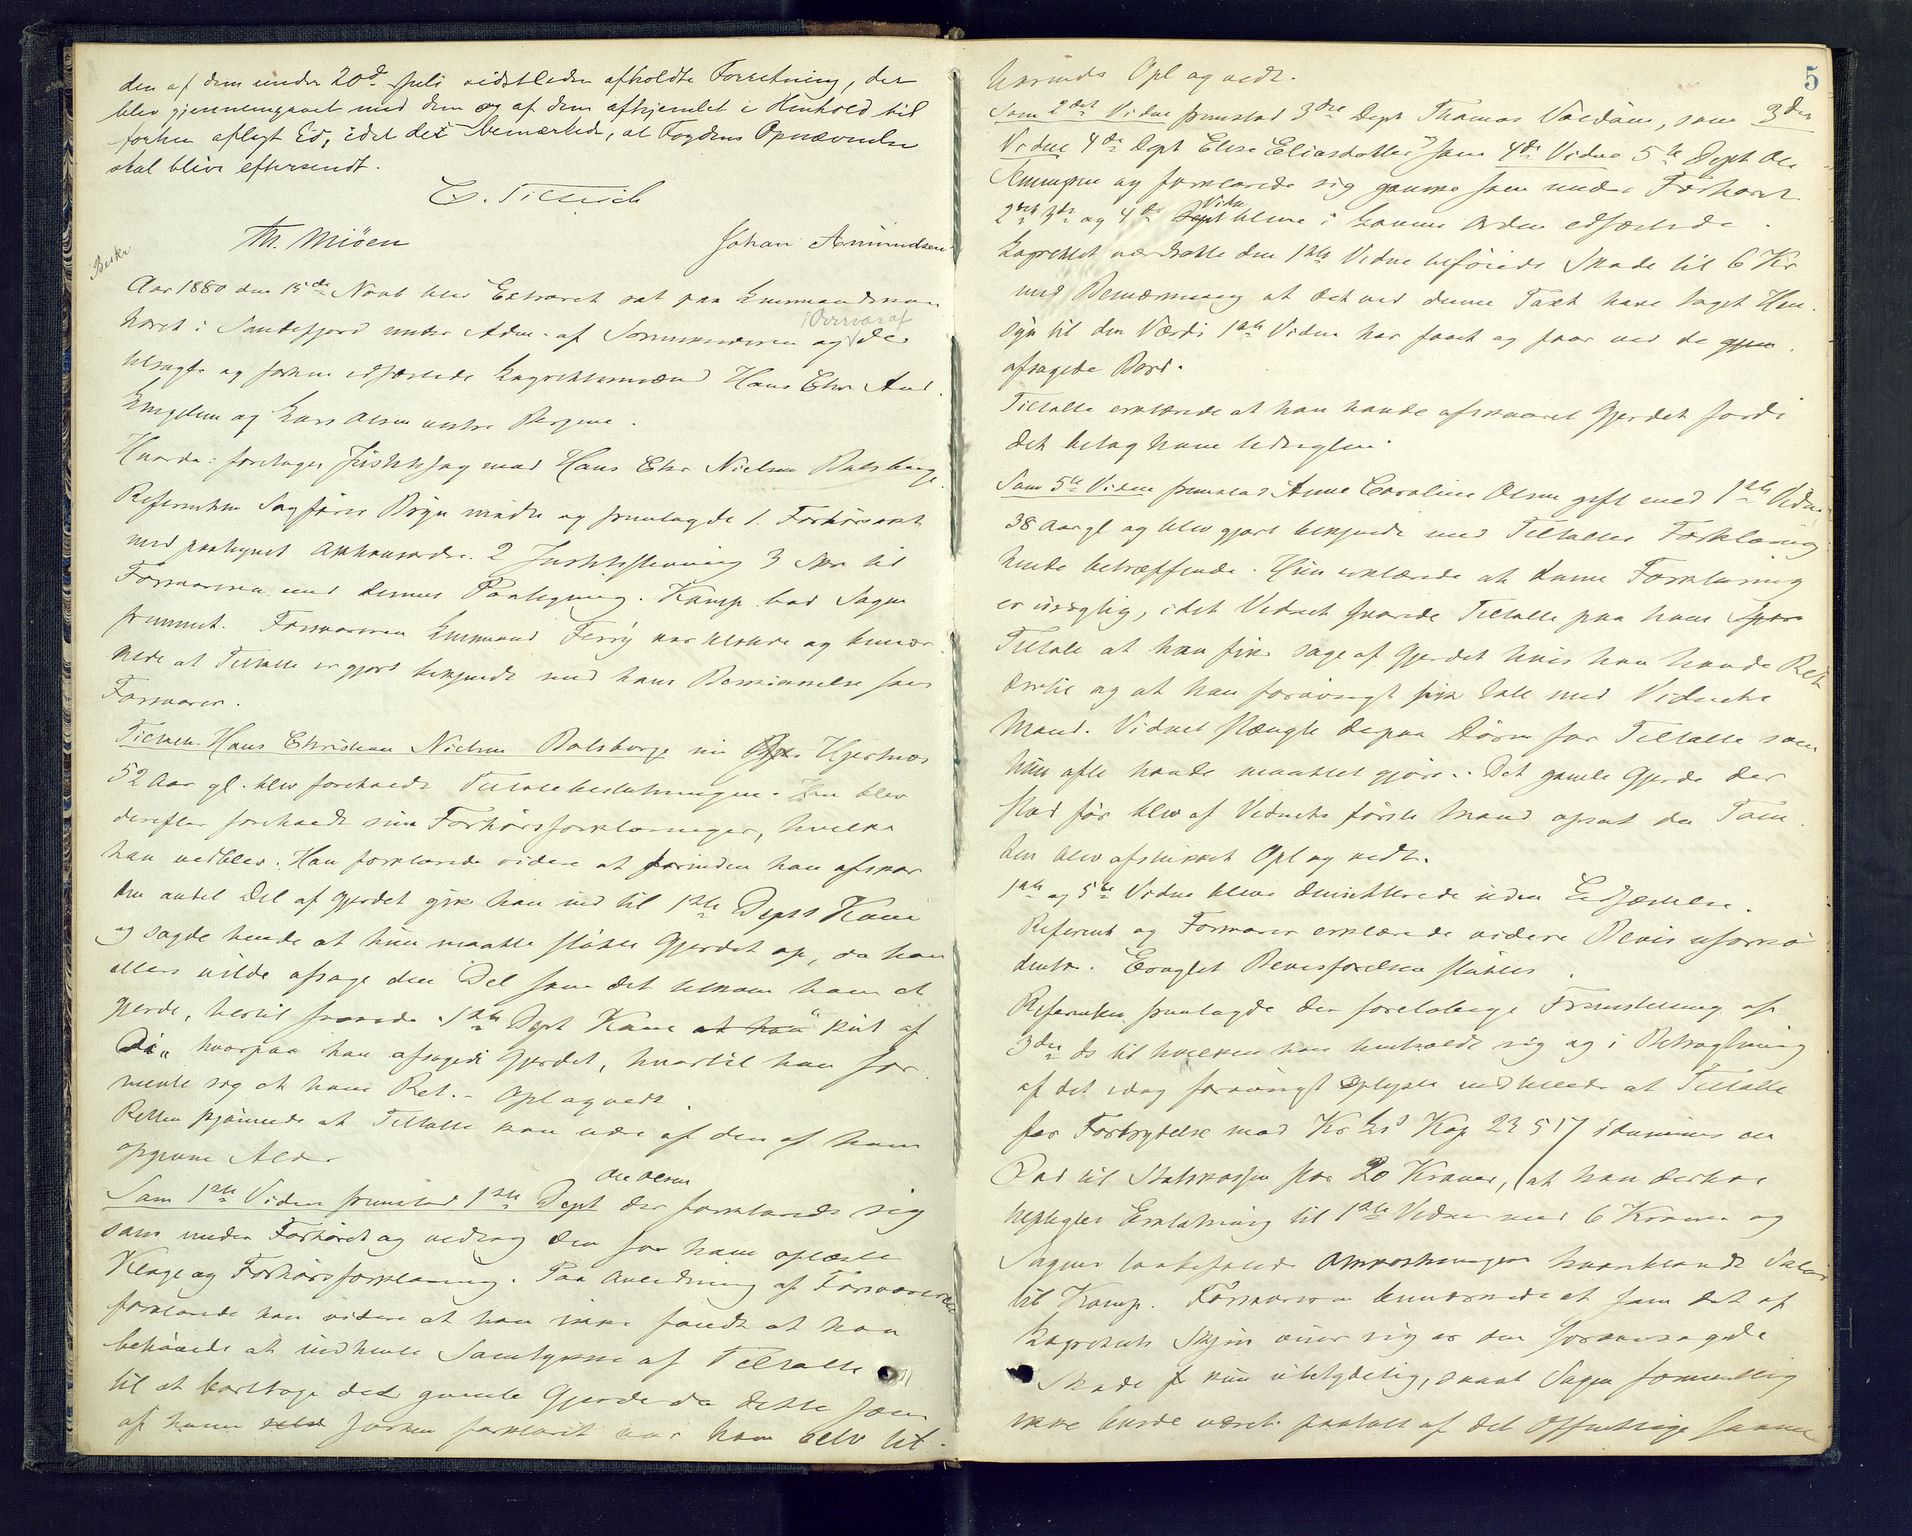 den af dem under 20de Juli sidstleden afholdte Forretning, der
blev gjennemgaaet med dem og af dem afhjemlet i Henhold til
forhen aflagt Ed, idet det bemærkedes, at Fogdens Opnævnelse
skal blive eftersendt.
Th. Miøen Johan Amundsen
Aar 1880 den 15de Novb blev Extraret sat paa Lensmandskon
toret i Sandefjord under Adm. af Sorenskriveren og Overvær af de
tilsagte og forhen edfæstede Lagrettesmænd Hans Chr And.
Engelsen og Lars Olsen vestre
Hvorda: foretoges Justitssag mod Hans Chr Nielsen Botsberge
Referenten Sagfører Bryn mødte og fremlagde 1. Forhørsakt
med paategnet Aktionsordre. 2 Justitsstevning 3 Skr til
Forsvareren med dennes Paategning. Kamp bad Sagen
fremmet. Forsvareren Lensmand Ferry var tilstede og bemær
kede at Tiltalte er gjort bekjendt med hans Beskikkelse som
Forsvarer.
Tiltalte Hans Christian Nielsen Botsberge nu Hjertnæs
52 Aar gl. blev foreholdt Tiltalebeslutningen. Han blev
derefter foreholdt sine Forhørsforklaringer, hvilke
han vedblev. Han forklarede videre at forinden han afskar
den andel Del af Gjerdet gik han ind til 1ste Depts Kone
og sagde hende at hun maatte flytte Gjerdet op, da han
ellers vilde afsage den Del som det tilkom ham at
gjerde, hertil svarede 1ste Dept Kone at han "kut af
Di" hvorpaa han afsagede Gjerdet, hvortil han for
mente sig at have Ret. - Opl og vedt.
Retten skjønnede at Tiltalte kan være af den af ham
opgivne Alder
Ole Olsen
Som 1ste Vidne fremstod 1ste Dept der forklarede sig
som under Forhøret og vedtog den for ham oplæste
Klage og Forhørsforklaring. Paa Anledning af Forsvareren
forklarede han videre at han ikke fandt at han
behøvede at indhente Samtykke af Tiltalte
til at borttage det gamle Gjerde da dette som
af ham forhen forklaret var ham blev til-
5
Opl og vedt.
Som 2det Vidne fremstod 3die Dept Thomas, som 3die
Vidne 4de Dept Elise Eliasdatter, som 4de Vidne 5te Dept Ole
og forklarede sig ganske som under Forhøret
2det 3die og 4de Dept Vidne bleve i Lovens Orden edfæstede.
Lagrettet værdsatte den 1ste Vidne tilføiede Skade til 6 Kr
med Bemærkning at det ved denne Taxt have taget Hen
syn til den Værdi 1ste Vidne har faaet og faar ved de
afsagede Bord.
Tiltalte erklærede at han havde afskaaret Gjerdet fordi
det betog ham Udsigten.
Som 5te Vidne fremstod Anne Caroline Olsen gift med 1ste Vidne
38 Aar gl og blev gjort bekjendt med Tiltaltes Forklaring
hende betræffende. Hun erklærede at denne Forklaring
er urigtig, idet Vidnet svarede Tiltalte paa hans
Tiltale at han fik sage af Gjerdet hvis han havde Ret
dertil og at han forøvrigt fik tale med Vidnets
Mand. Vidnet stængte derpaa Døren for Tiltalte som
hun ofte havde maattet gjøre. Det gamle Gjerde der
stod før blev af Vidnets første Mand opsat da Tom
ten blev afstukket Opl og vedt.
1ste og 5te Vidne bleve demitterede uden Edfæstelse.
Referent og Forsvarer erklærede videre Bevis ufornø
dent. Bevisførelsen sluttes.
Referenten fremlagde den foreløbige Fremstilling af
3die ds til hvilken han henholdt sig og i Betragtning
af det idag forøvrigt oplyste indstillede at Tiltalte
for Forbrydelse mod Kr Ls Kap 22 § 17 idømmes en
Bod til Statskassen stor 20 Kroner, at han derhos
paalægges Erstatning til 1ste Vidne med 6 Kroner og
Sagens lovbefalede Omkostninger hvoriblandt Salær
til Kamp. Forsvareren bemærkede at som det af
Lagrettets Skjøn viser sig er den foraarsagede
Skade kun ubetydelig, saaat Sagen formentlig
ikke burde været paatalt af det Offentlige